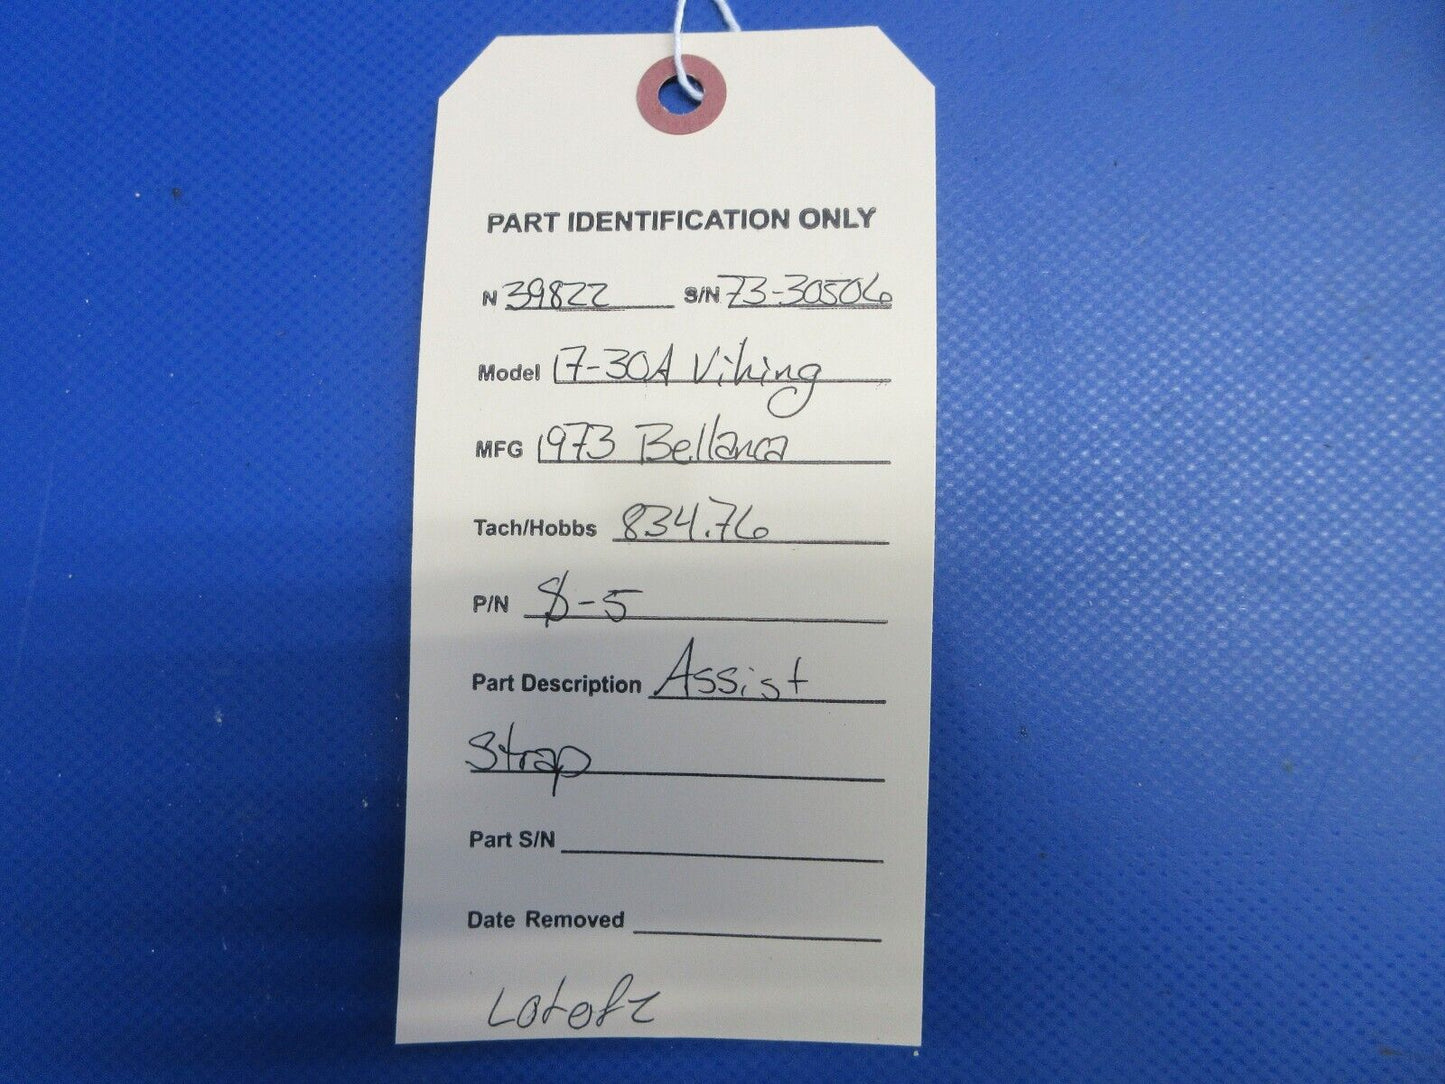 PART IDENTIFICATION ONLY
N 39822 S/N 73-30506
Model 17-30A Viking
MFG 1973 Bellanca
Tach/Hobbs 834.76
P/N 8-5
Part Description Assist
Strap
Part S/N
Date Removed
Lot of 2